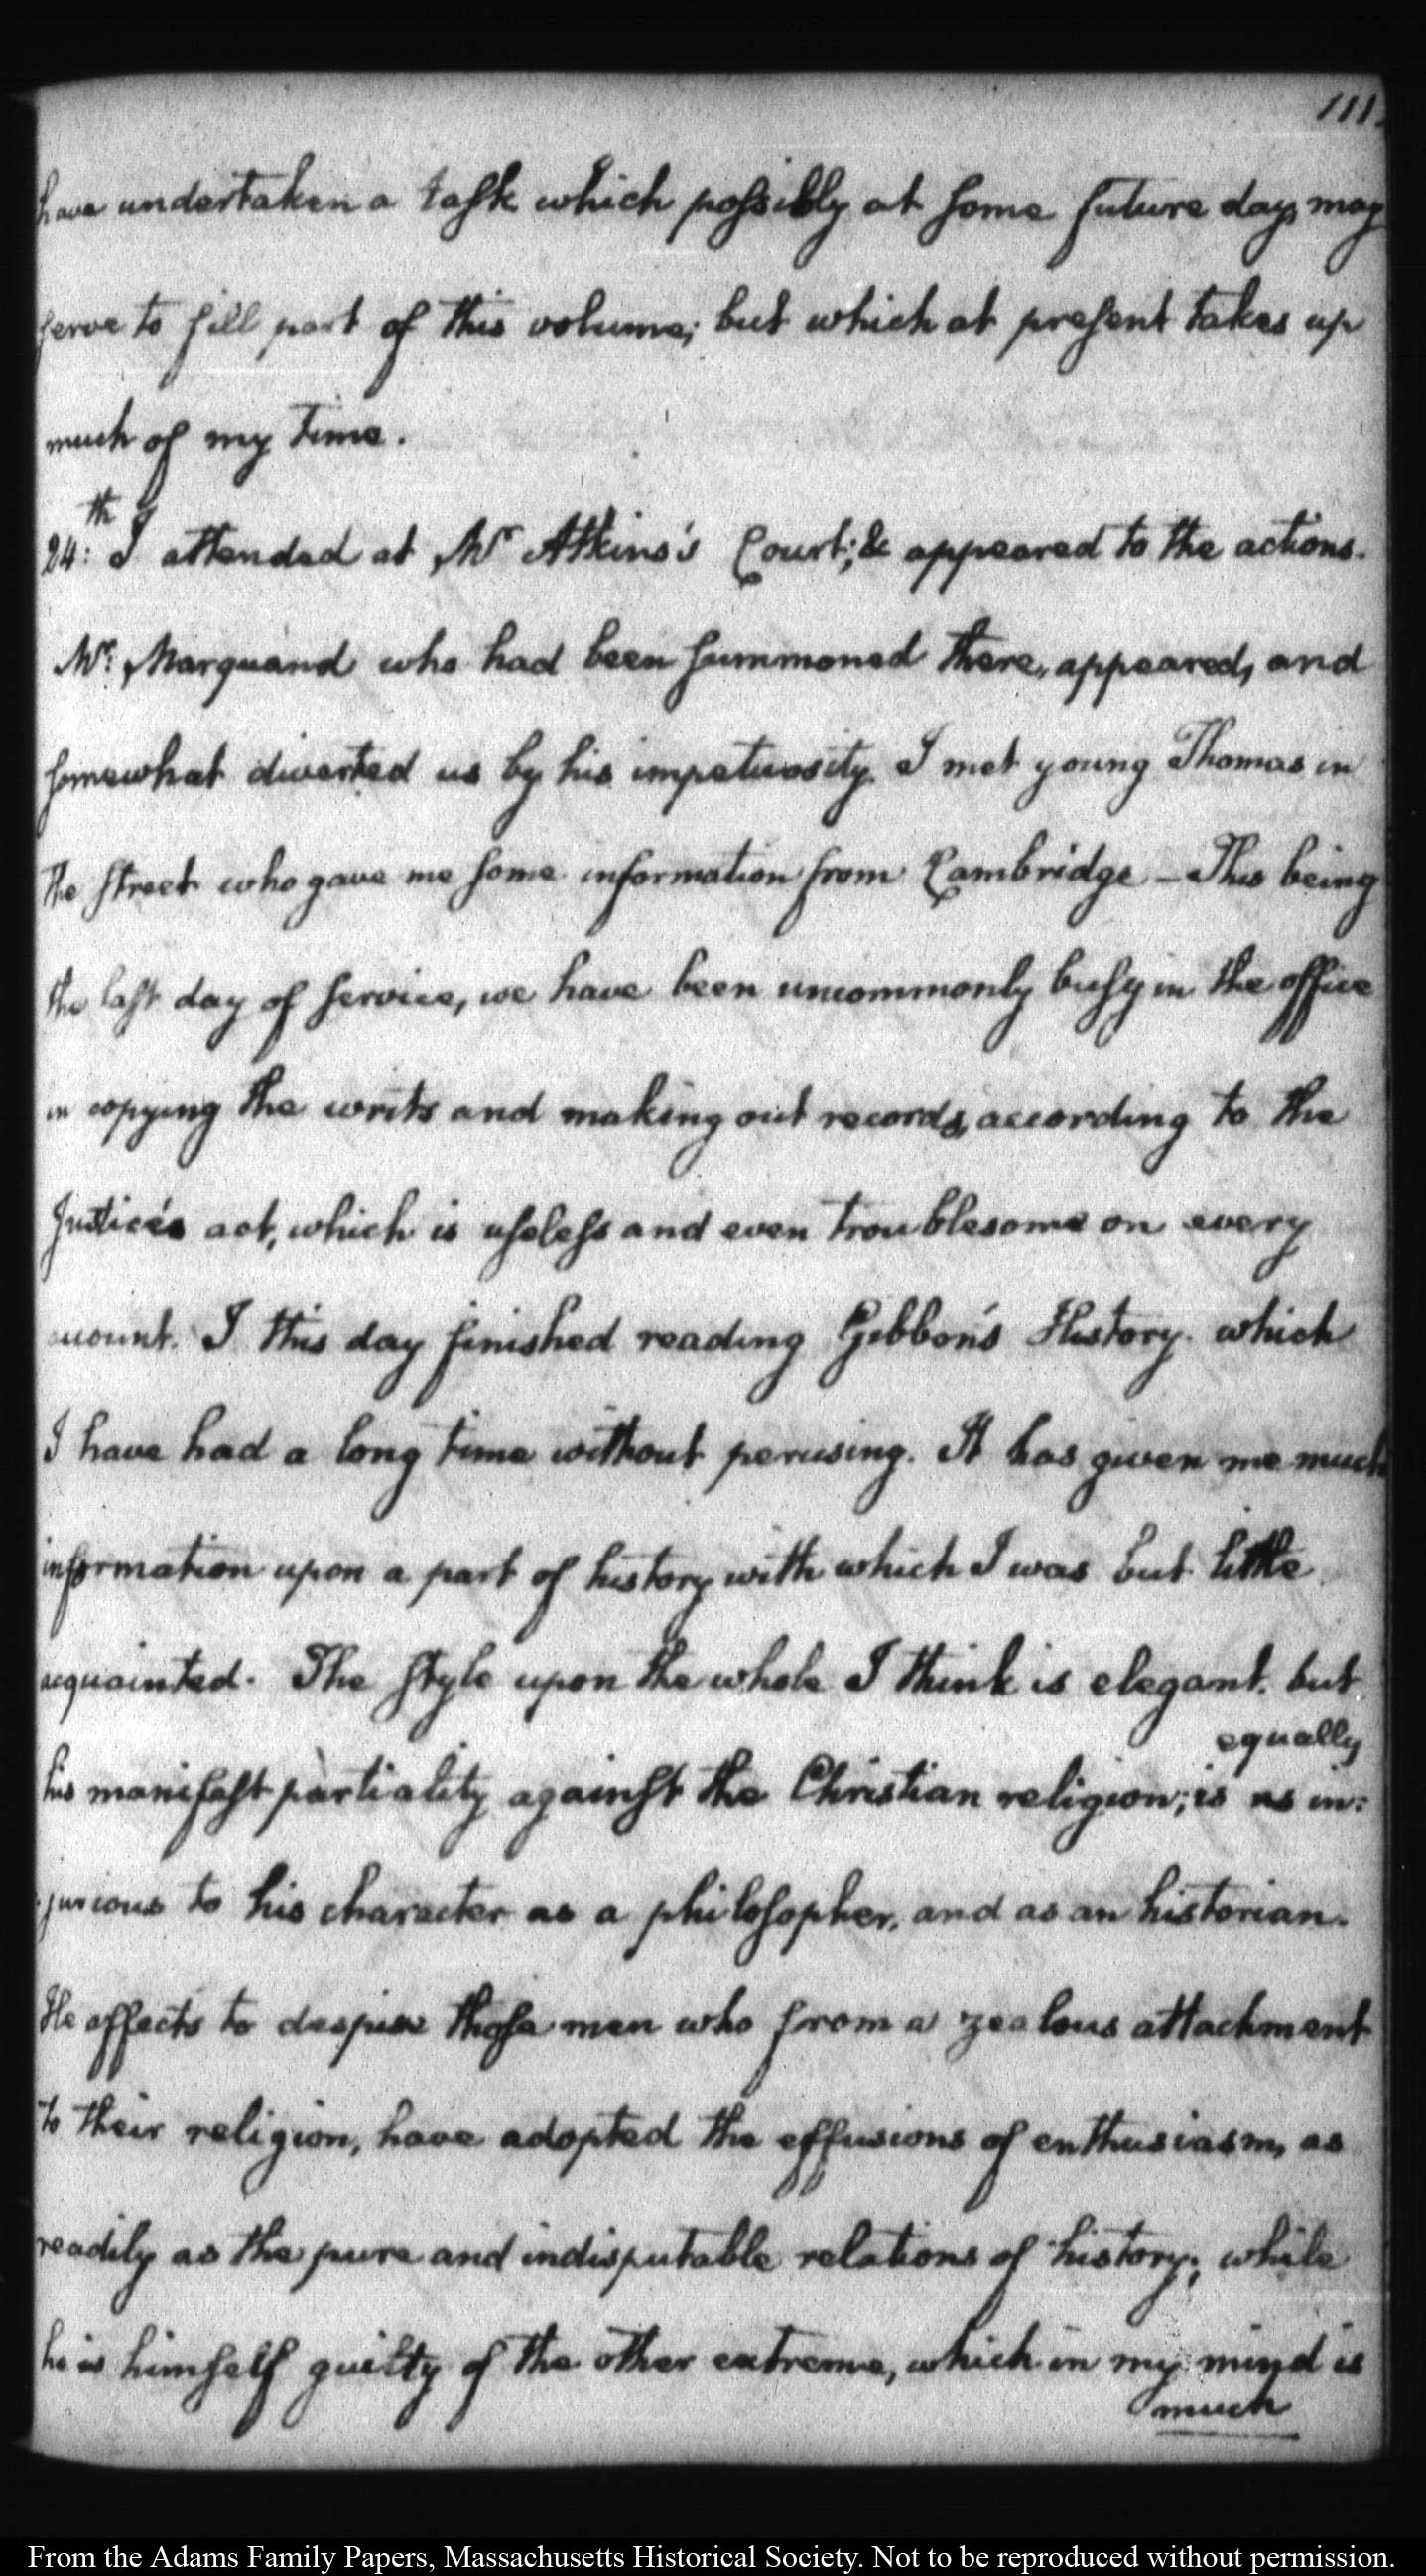 111.
have undertaken a task which possibly at some future day, may
serve to fill part of this volume; but which at present takes up
much of my time.
24:th I attended at Mr Atkins's Court; & appeared to the actions.
Mr: Marquand who had been summoned there, appeared, and
somewhat diverted us by his impetuosity. I met young Thomas in
the street who gave me some information from Cambridge — This being
the last day of service, we have been uncommonly busy in the office
in copying the writs and making out records, according to the
Justice's act, which is useless and even troublesome on every
account. I this day finished reading Gibbon's History. which
I have had a long time without perusing. It has given me much
information upon a part of history with which I was but little
acquainted. The style upon the whole I think is elegant. but
equally
his manifest partiality against the Christian religion; is as in:
:jurious to his character as a philosopher, and as an historian.
He affects to despise those men who from a zealous attachment
to their religion, have adopted the effusions of enthusiasm, as
readily as the pure and indisputable relations of history; while
he is himself guilty of the other extreme, which in my mind is
much
From the Adams Family Papers, Massachusetts Historical Society. Not to be reproduced without permission.